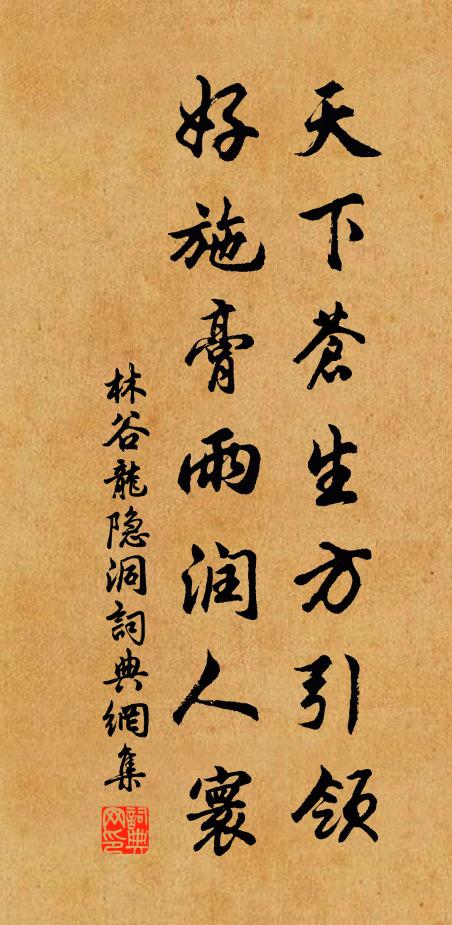 天下蒼生方引領
好施膏雨润人寰
林谷龍隐洞詞典網集
詞典網印